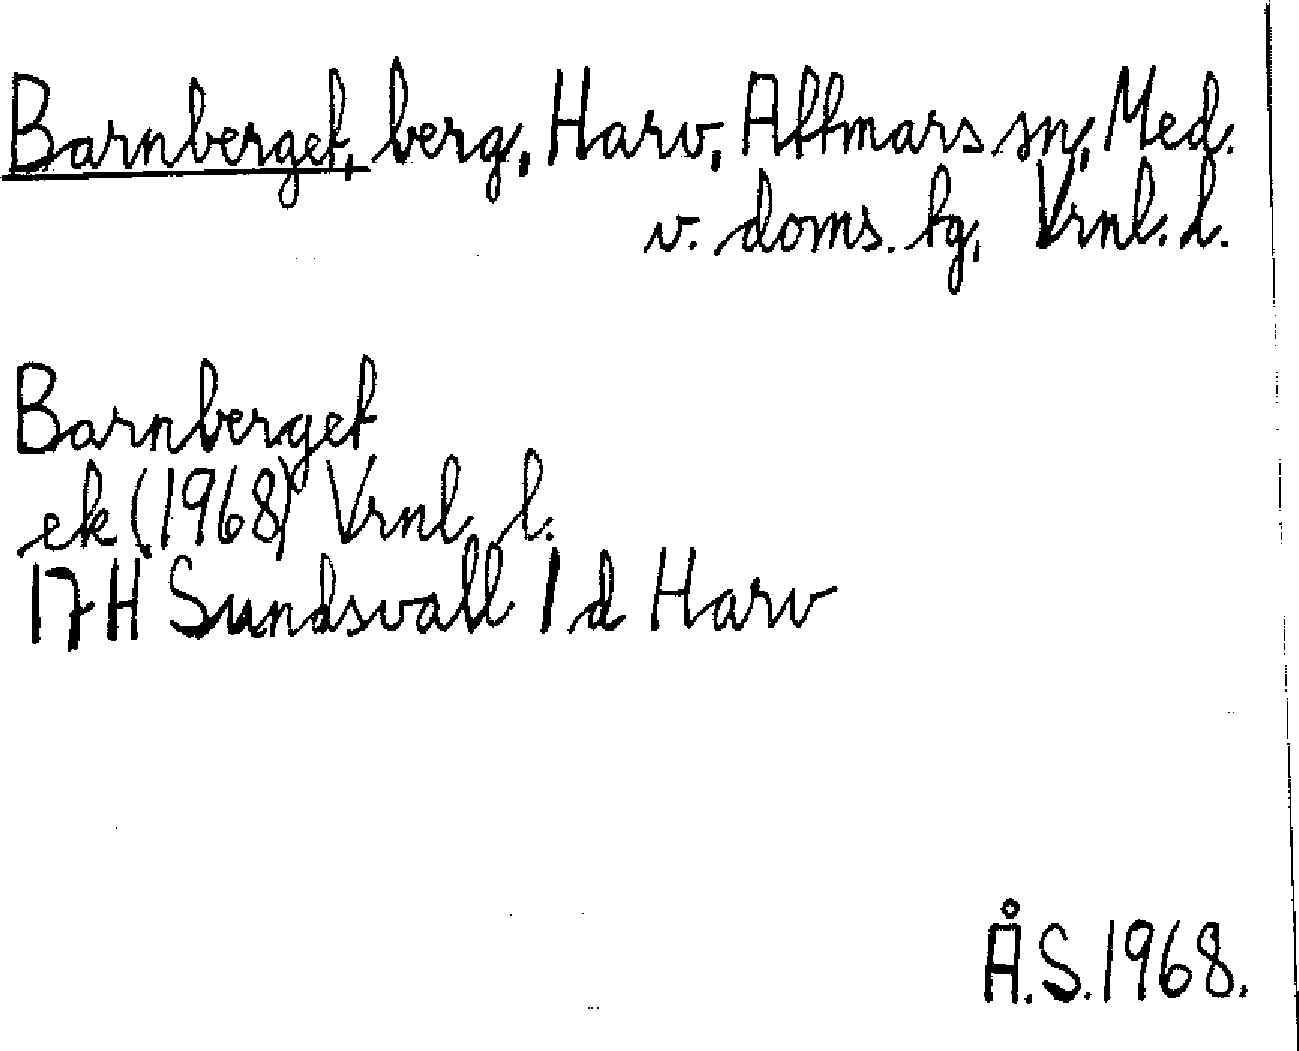 Barnberget, berg, Harv, Attmars sn, Med.
v. doms. hg, Vrnl. l.
Barnberget
ek (1968) Vrnl. l.
17 H Sundsvall 1 d Harv
Å.S. 1968.